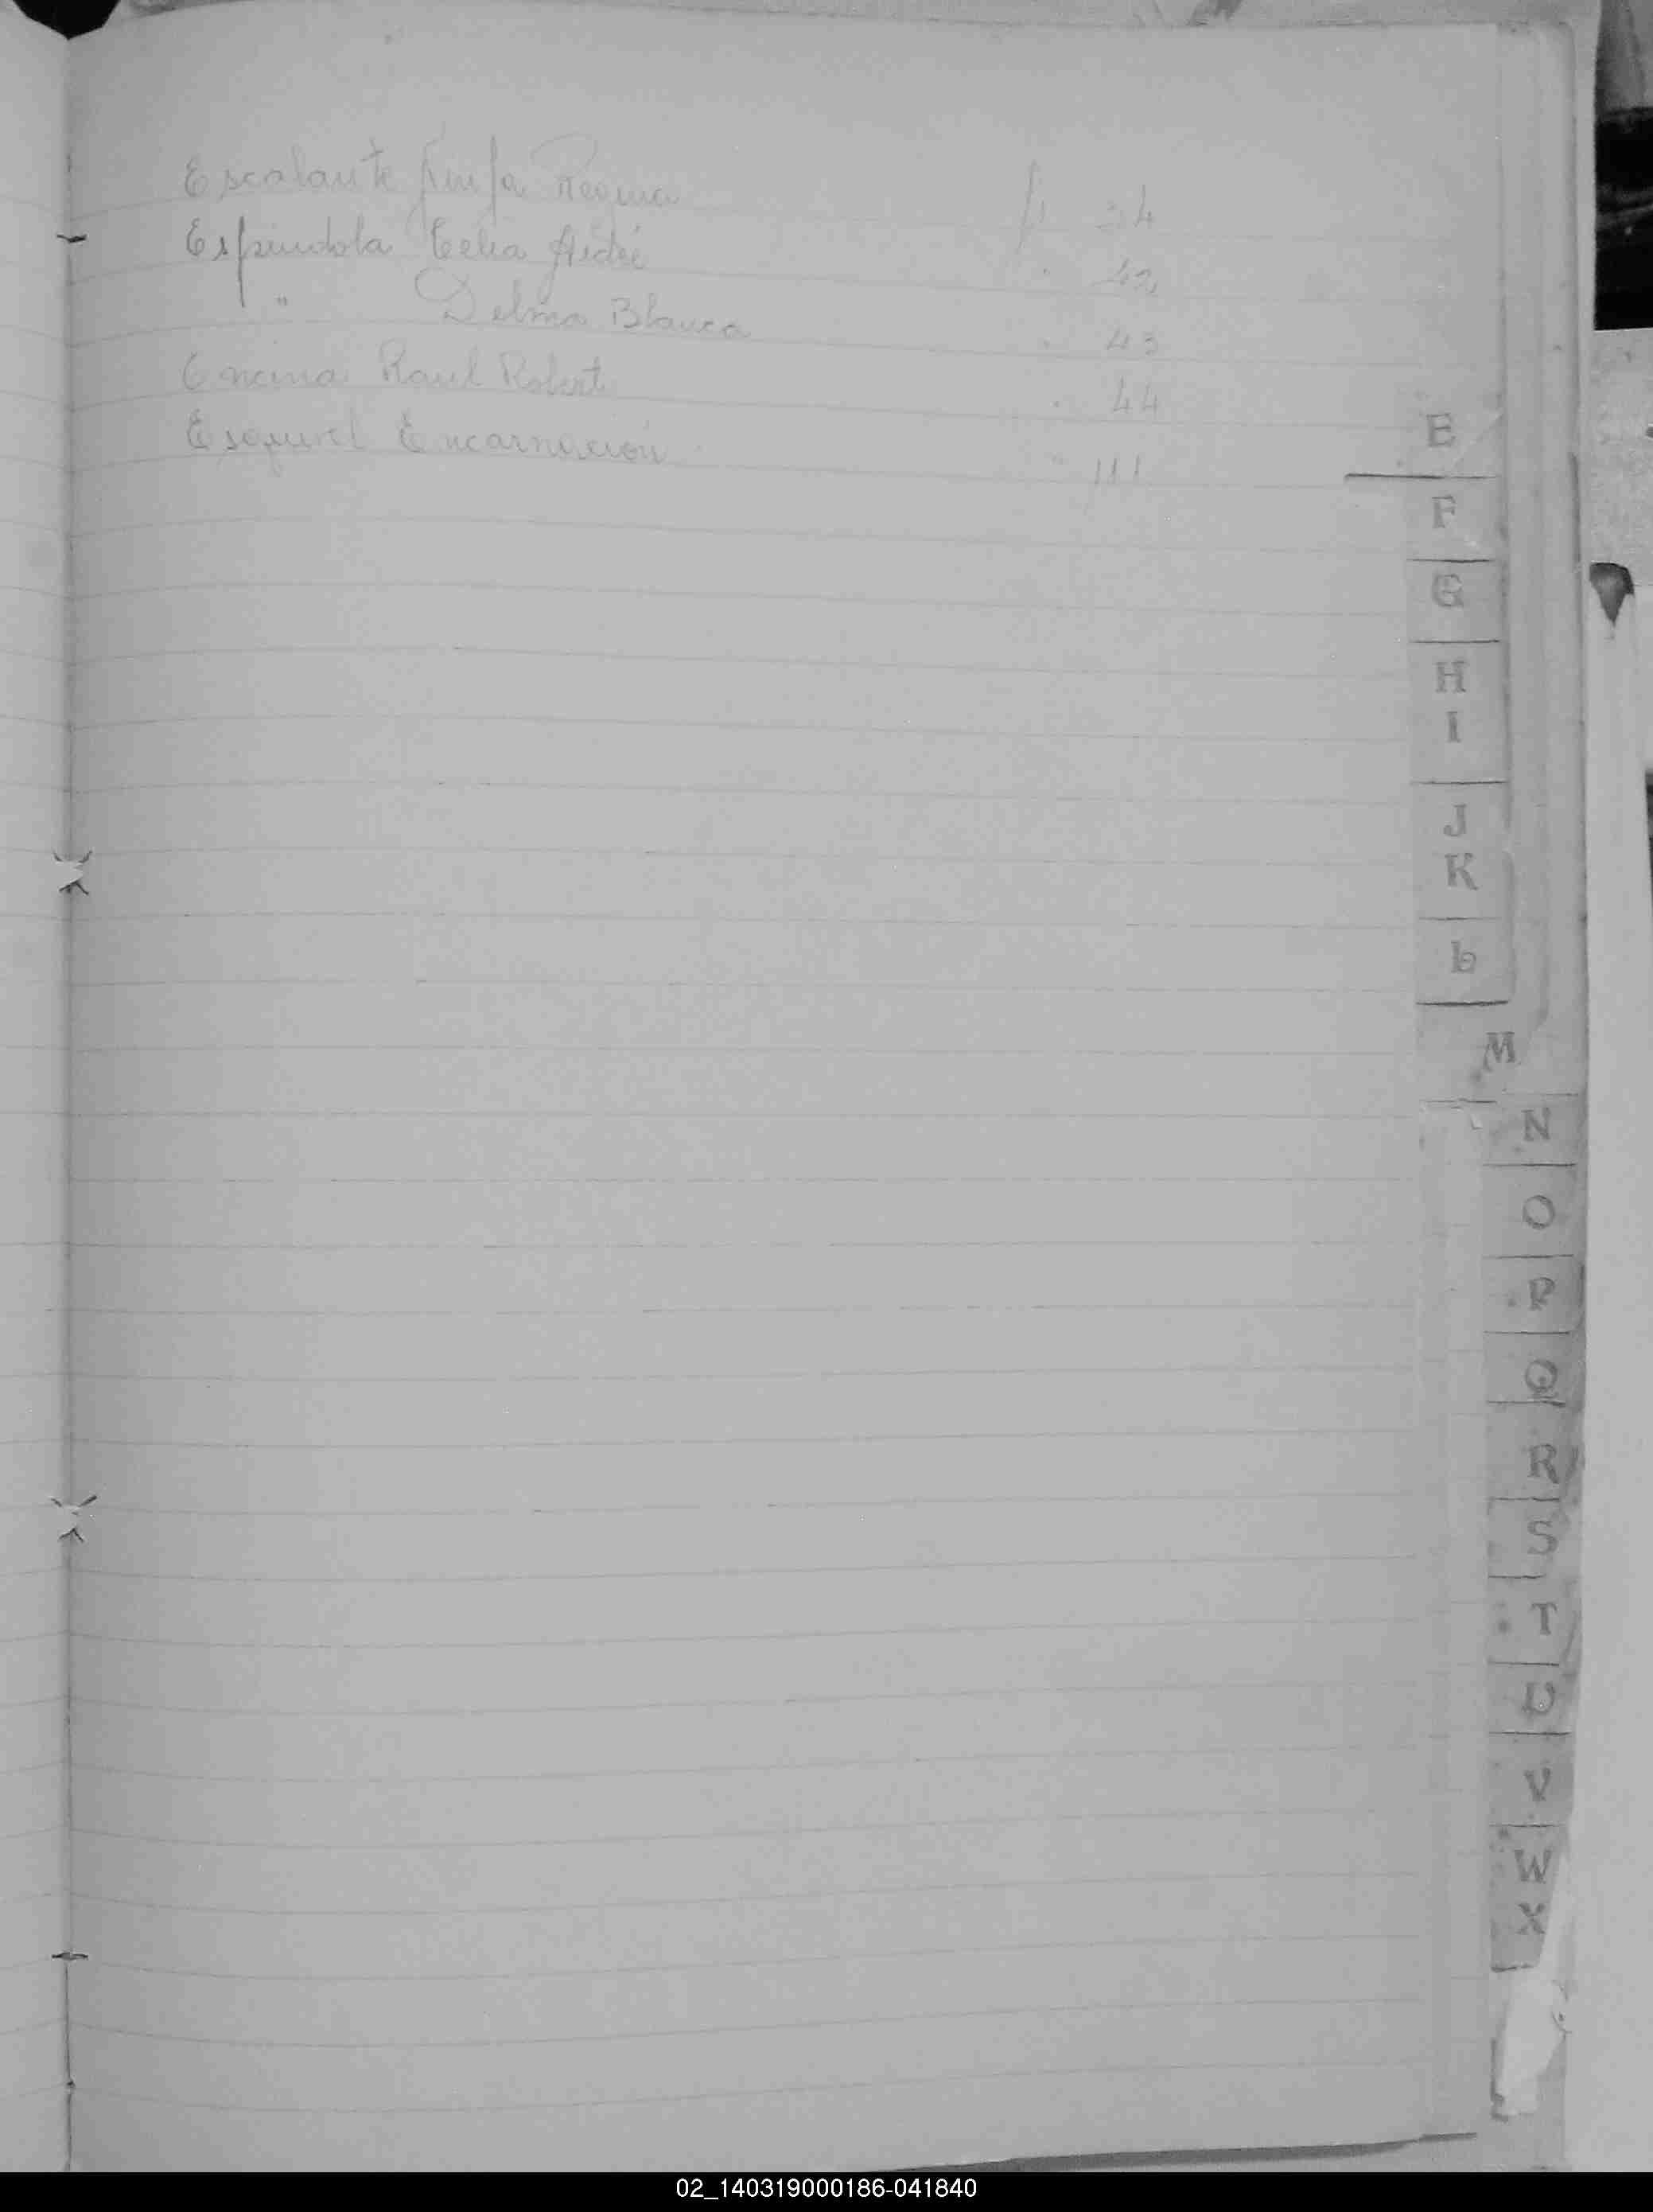 Escalante Ninfa Regina
Espindola Celia Aidée 42
" Delma Blanca " 43
Encina Raul Robert " 44
Esquivel Encarnación " 111
E
F
G
H
I
J
K
L
M
N
O
P
Q
R
S
T
U
V
W
X
02_140319000186-041840